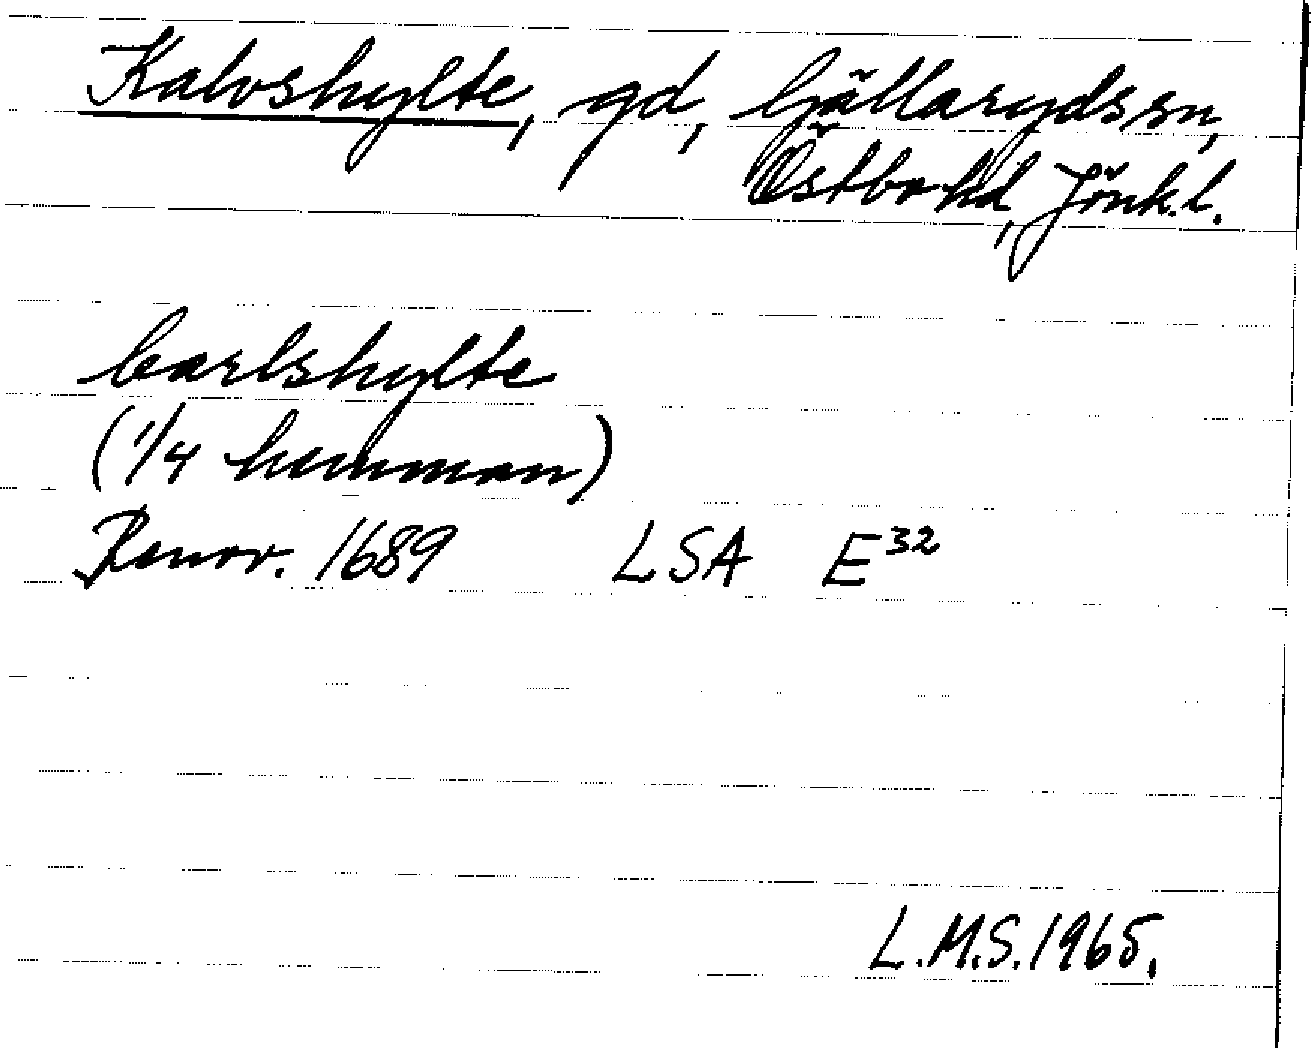 Kalvshylte, gd, Gällaryds sn,
Östbo hd, Jönk.l.
Carlshylte
(1/4 hemman)
Renov. 1689 LSA E³²
L.M.S. 1965.